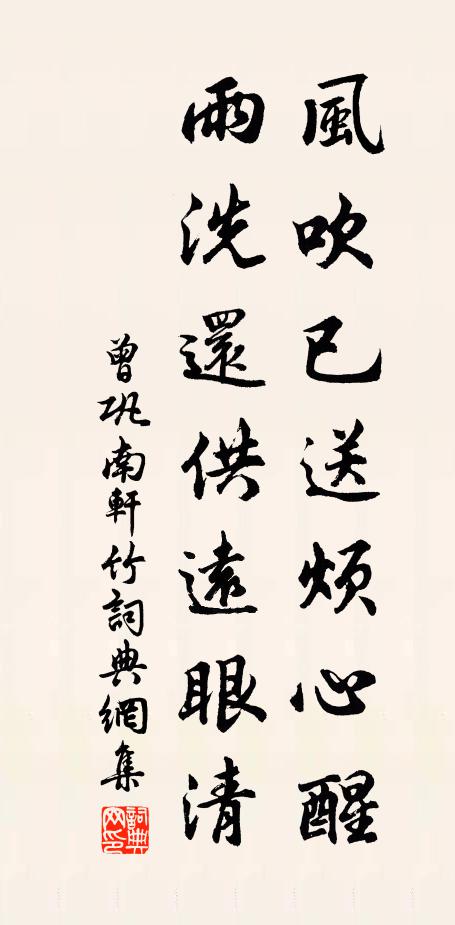 風吹已送煩心醒
雨洗還供遠眼清
曾鞏南軒竹詞典網集
詞典網印